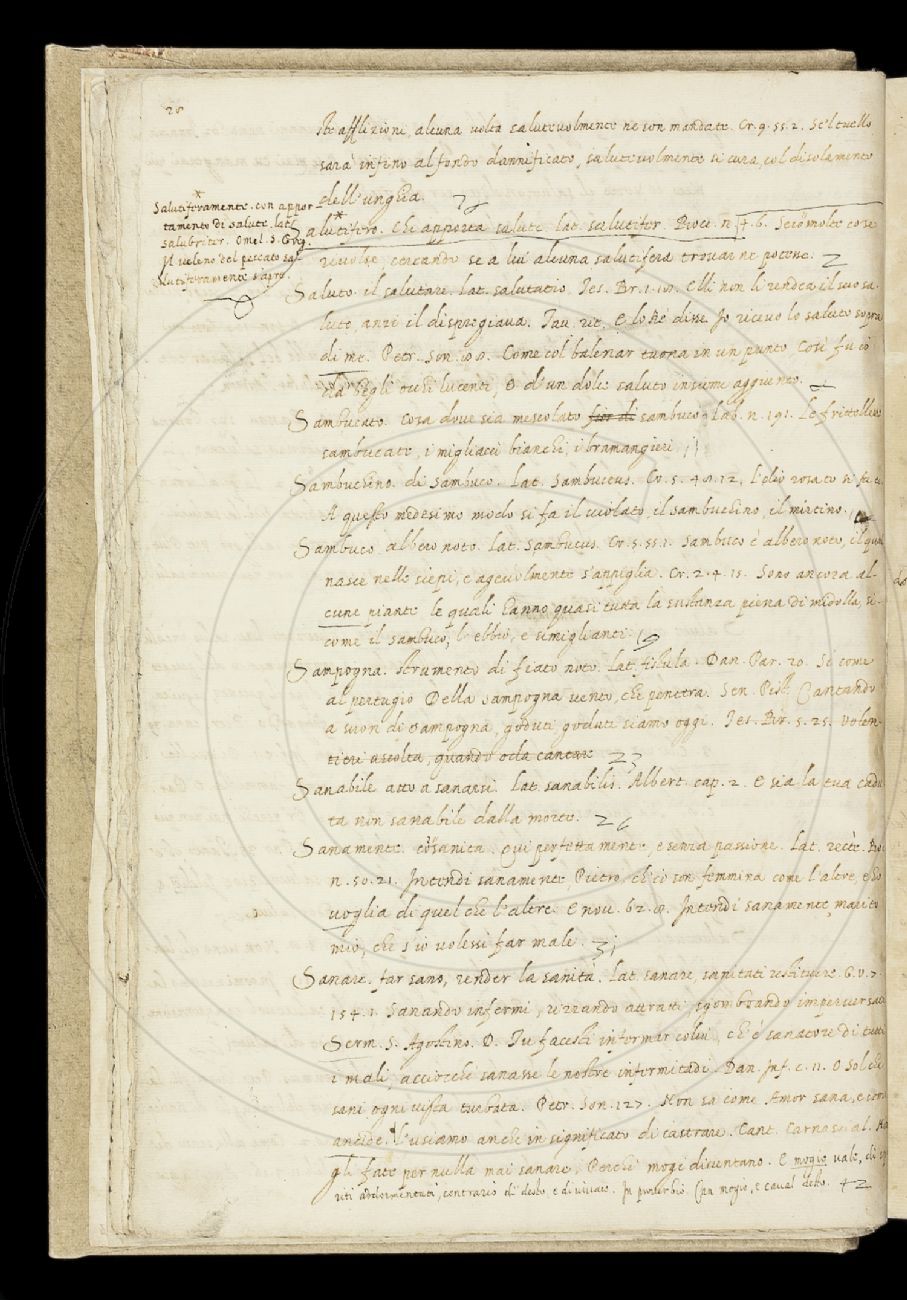 28
ste afflizioni alcuna volta salutevolmente ne son mandate. Cr. 9. 55. 2. Se'l tuello
sarà infino al fondo dannificato, salutevolmente si cura, col disolamento
dell'unghia.
Salutiferamente. con appor-
tamento di salute. lat.
salubriter. Omel. S. Greg.
Il veleno del peccato sa-
lutiferamente s'apre.
Salutifero. Che apporta salute. lat. salutifer. Bocc. n. 4. 6. Seco molte cose
rivolse, cercando se a lui alcuna salutifera trovar ne potesse.
Saluto. il salutare. lat. salutatio. Tes. Br. 1. Elli non li rendea il suo sa-
luto, anzi il dispregiava. Tav. rit. E lo Re disse. Io ricevo lo saluto sopra
di me. Petr. Son. Come col balenar tuona in un punto Così fu io
da begli occhi lucenti, E d'un dolce saluto insieme aggiunto.
Sambucato. Cosa dove sia mescolato fior di sambuco. Lab. n. 191. Le frittellette
sambucate, i migliacci bianchi, i bramangieri
Sambuchino. di Sambuco. Lat. Sambuceus. Cr. 5. 48. 12. l'olio rosato si fa
A questo medesimo modo si fa il violato, il sambuchino, il mirtino.
Sambuco, albero noto. Lat. Sambucus. Cr. 5. 55. 1. Sambuco è albero noto, il qual
nasce nelle siepi, e agevolmente s'appiglia. Cr. 2. 4. 15. Sono ancora al-
cune piante le quali hanno quasi tutta la sustanza piena di midolla, si-
come il sambuco, l'ebbio, e simiglianti.
Sampogna. strumento di fiato noto. Lat. fistula. Dan. Par. 20. Sì come
al pertugio Della sampogna vento, che penetra. Sen. Pist. Cantando
a suon di sampogna, goduti goduti siamo oggi. Tes. Br. 5. 25. Volen-
tieri ascolta, quando oda cantare
Sanabile atto a sanarsi. Lat. sanabilis. Albert. cap. 2. E sia la tua cadu-
ta non sanabile dalla morte.
Sanamente. con sanità. Qui perfettamente, e senza passione. Lat. rectè. Boc.
n. 50. 21. Intendi sanamente, Pietro, ch'io son femmina come l'altre, e ho
voglia di quel che l'altre. E nov. 62. 8. Intendi sanamente, marito
mio, che s'io volessi far male.
Sanare. far sano, render la sanità. Lat. sanare, sanitati restituere. G. V. 7.
154. 1. Sanando infermi, rizzando attratti, sgombrando imperversati
Serm. S. Agostino. D. Tu facesti infermar colui, ch'è sanatore di tutti
i mali, acciocchè sanasse le nostre infermitadi. Dan. Inf. c. 11. O Sol che
sani ogni vista turbata. Petr. Son. 127. Non sa come Amor sana, e come
ancide. L'usiamo anche in significato di castrare. Cant. Carnascial. Ma
gli fate per nulla mai sanare, Perchè mogi diventano. E mogio vale, di spi-
riti addormentati, contrario di desto, e di vivace. In proverbio. Can mogio, e caval desto.